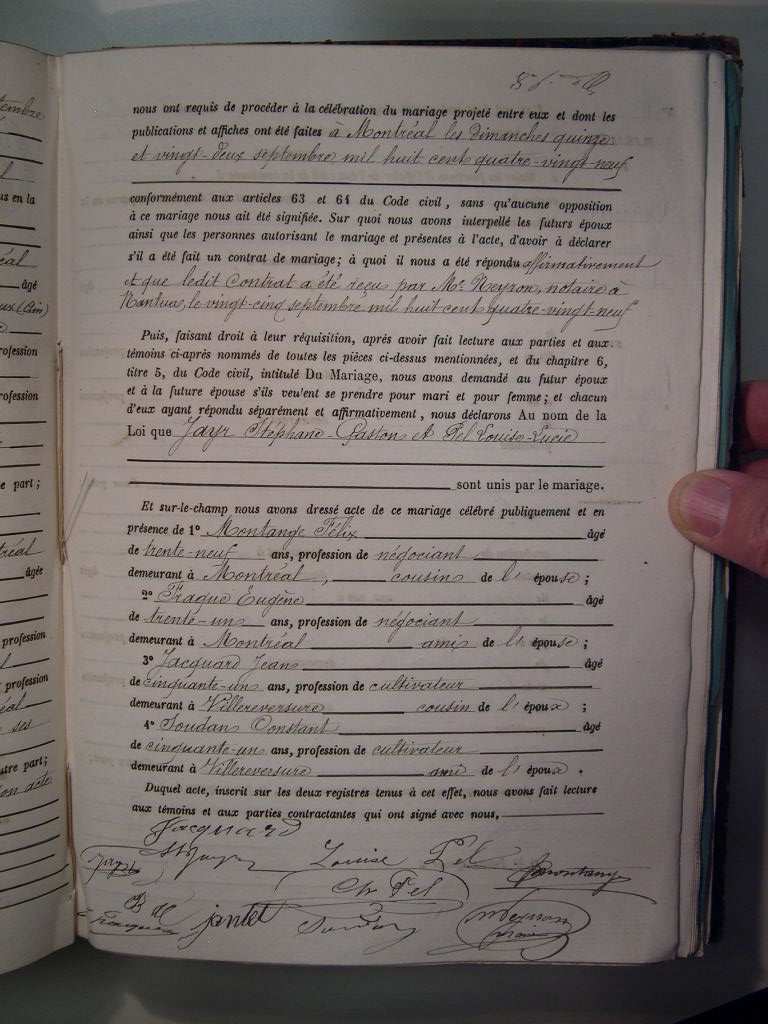 tembre
nous ont requis de procéder à la célébration du mariage projeté entre eux et dont les
publications et affiches ont été faites à Montréal les Dimanches quinze
et vingt-deux septembre mil huit cent quatre-vingt-neuf
conformément aux articles 63 et 64 du Code civil, sans qu'aucune opposition
à ce mariage nous ait été signifiée. Sur quoi nous avons interpellé les futurs époux
ainsi que les personnes autorisant le mariage et présentes à l'acte, d'avoir à déclarer
s'il a été fait un contrat de mariage; à quoi il nous a été répondu affirmativement
et que ledit Contrat a été reçu par Me Neyron, notaire à
Nantua, le vingt-cinq septembre mil huit cent quatre-vingt-neuf
Puis, faisant droit à leur réquisition, après avoir fait lecture aux parties et aux
témoins ci-après nommés de toutes les pièces ci-dessus mentionnées, et du chapitre 6,
titre 5, du Code civil, intitulé Du Mariage, nous avons demandé au futur époux
et à la future épouse s'ils veu'ent se prendre pour mari et pour femme; et chacun
d'eux ayant répondu séparément et affirmativement, nous déclarons Au nom de la
Loi que Jayr Stéphane-Gaston et Pel Louise-Lucie
sont unis par le mariage.
Et sur-le-champ nous avons dressé acte de ce mariage célébré publiquement et en
présence de 1° Montange Félix âgé
de trente-neuf ans, profession de négociant
demeurant à Montréal, cousin de l'épouse;
2° Prague Eugène âgé
de trente-un ans, profession de négociant
demeurant à Montréal ami de l'épouse;
3° Jacquard Jean âgé
de cinquante-un ans, profession de cultivateur
demeurant à Villereversure cousin de l'époux;
4° Soudan Constant âgé
de cinquante-un ans, profession de cultivateur
demeurant à Villereversure ami de l'époux.
Duquel acte, inscrit sur les deux registres tenus à cet effet, nous avons fait lecture
aux témoins et aux parties contractantes qui ont signé avec nous,
Jacquard
Louise Pel Montange
Ch Pel
jantet Neyron